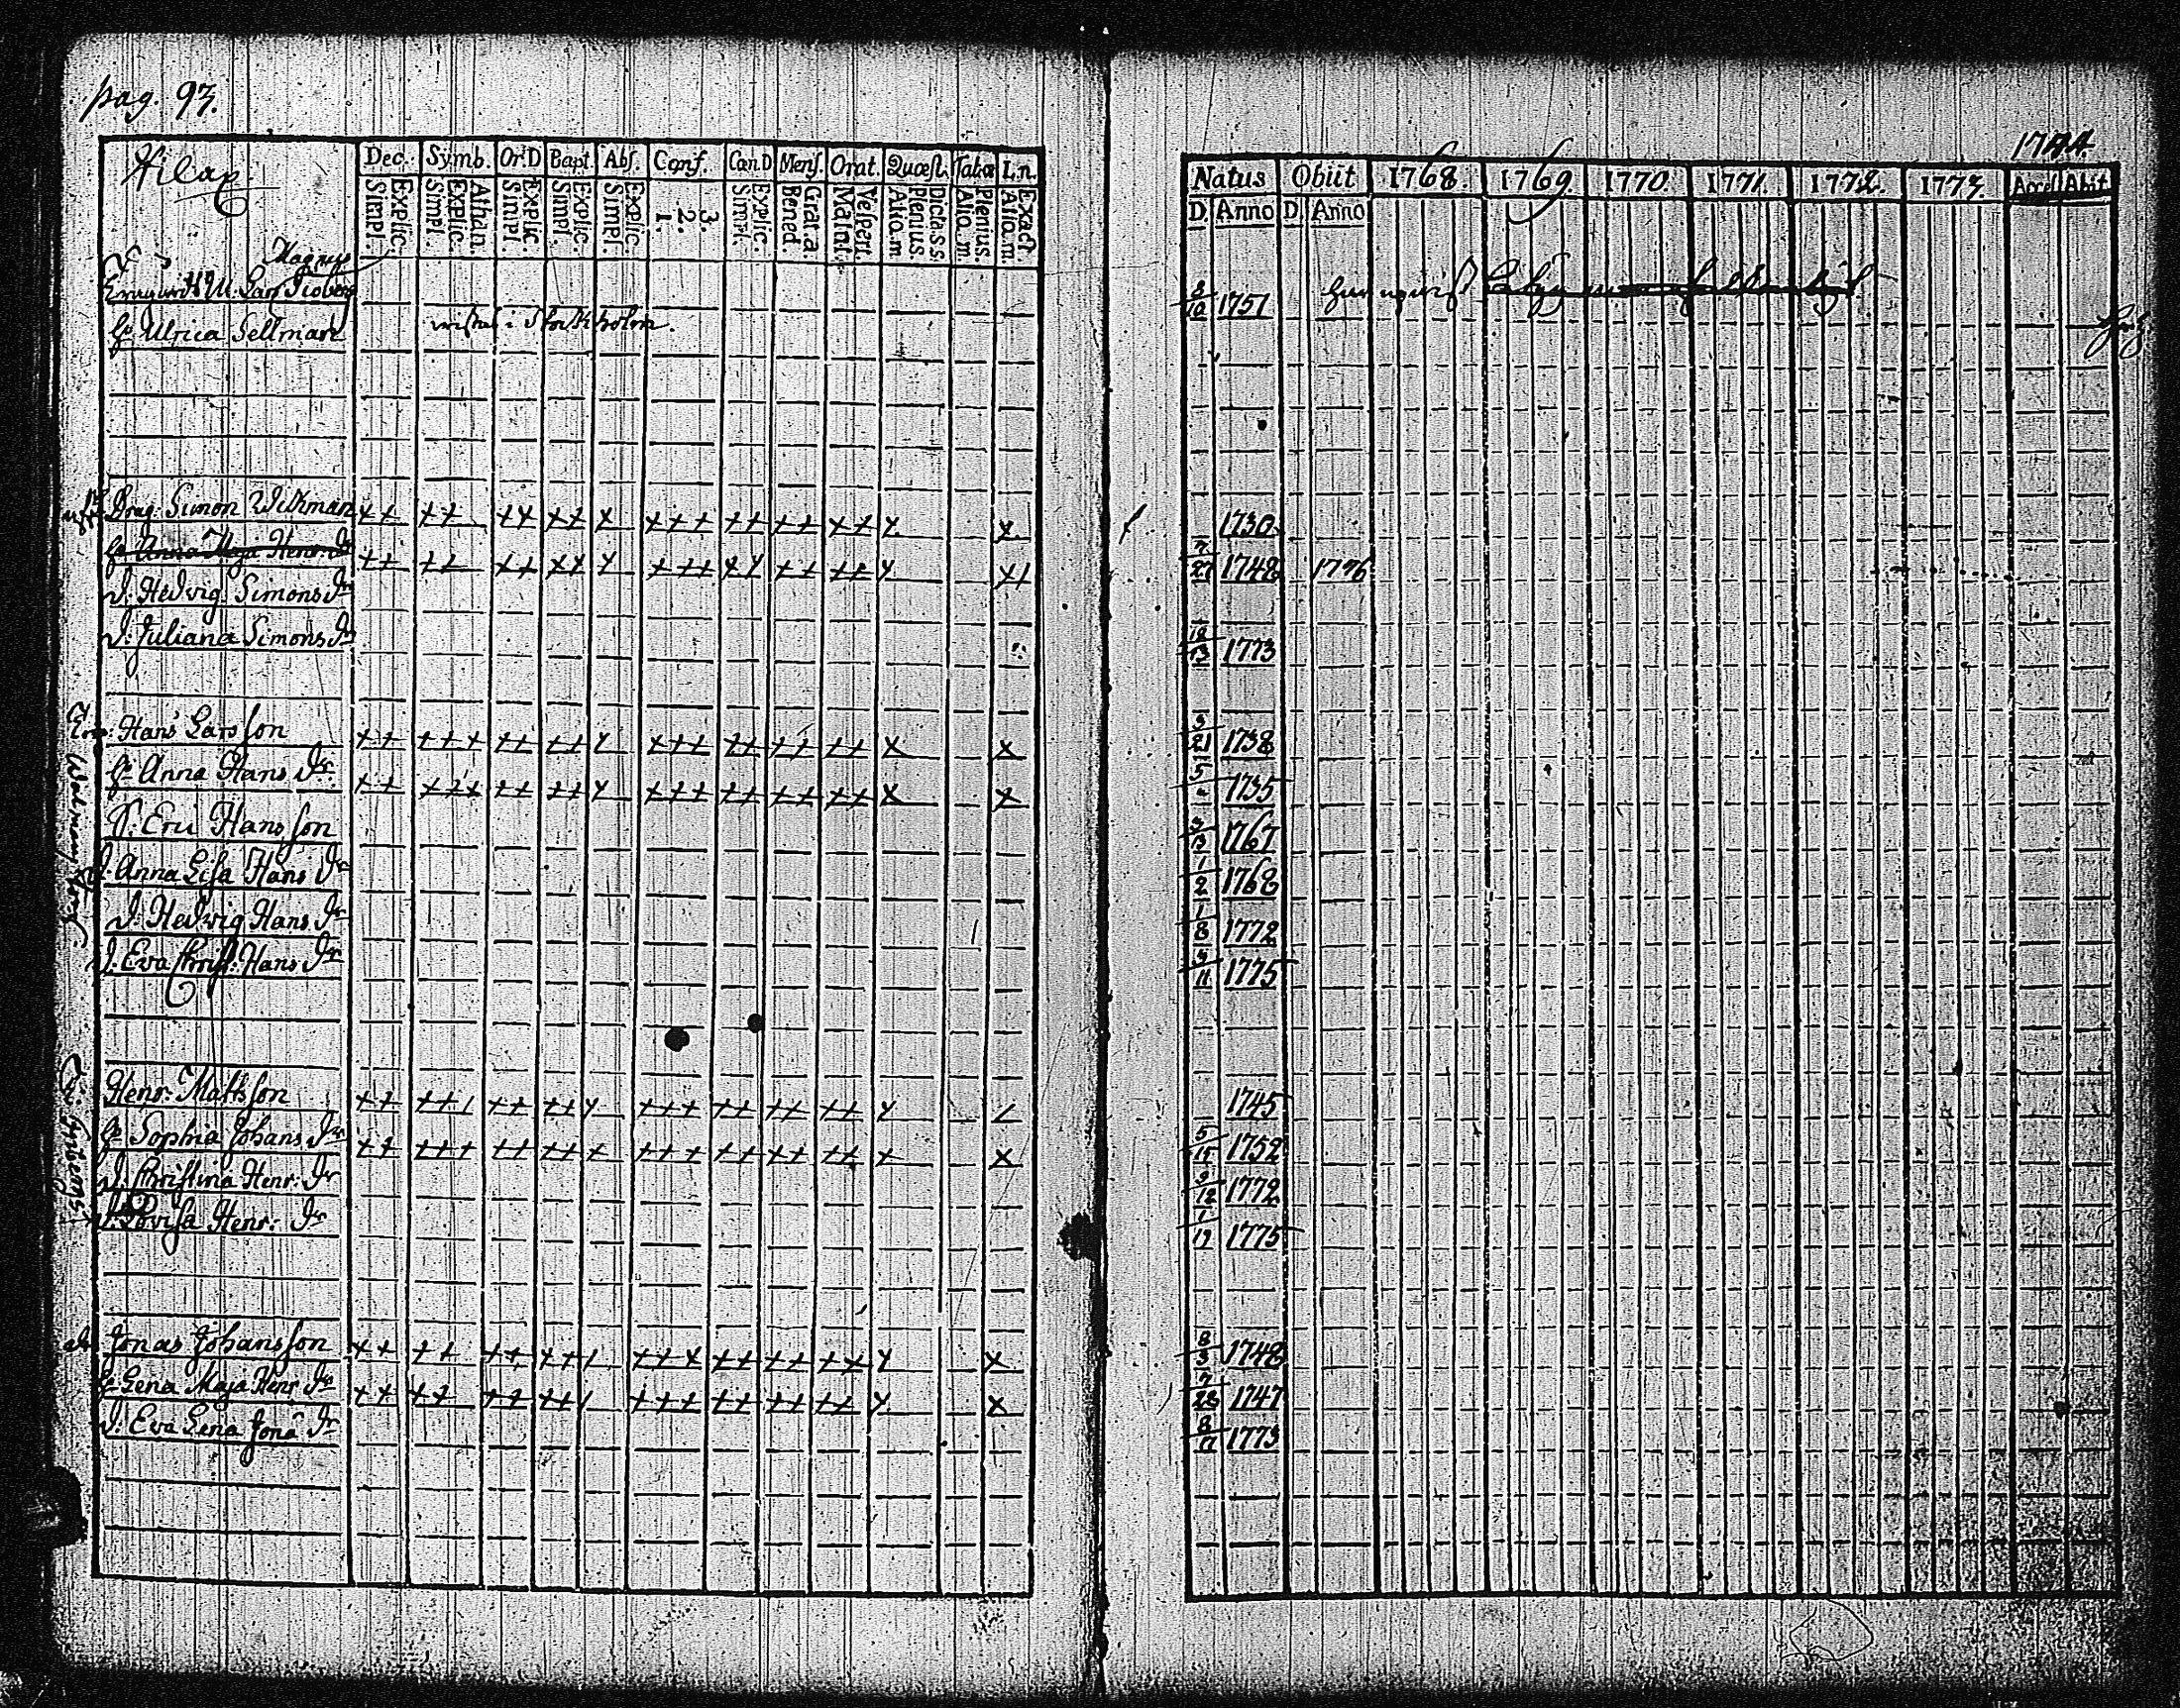 pag. 93.
Hilap
Dec. Symb. Or:D Bapt. Abs. Conf. Can.D Mens. Orat. Quæst. Tabæ I.n.
Simpl. Explic. Simpl. Explic. Athan. Simpl. Explic. Simpl. Explic. Simpl. Explic. 1. 2. 3. Simpl. Explic. Bened. Grat.a. Matut. Vespert. Aliq.m Plenius. Dict.a.s.s. Aliq.m Plenius. Aliq.m Exact
Magnus
Lars Sioberg
H. Ulrica Sellman
Drag. Simon Wikman
H. Anna Maja Henr. Dr
D. Hedvig Simons Dr
D. Juliana Simons Dr
Hans Larsson
H. Anna Hans Dr
S. Eric Hansson
D. Anna Lisa Hans Dr
D. Hedvig Hans Dr
D. Eva Christ: Hans Dr
Henr: Mattsson
H. Sophia Johans Dr
D. Christina Henr. Dr
D. Lovisa Henr: Dr
Jonas Johansson
H. Lena Maja Henr Dr
D. Eva Lena Jona Dr
1774.
Natus Obiit 1768. 1769. 1770. 1771. 1772. 1773. Acces Abit
D. Anno D. Anno
8/10 1751
1730
7/27 1748 1776
12/13 1773
9/21 1738
5 1735
3/13 1767
1/2 1768
1/8 1772
4/11 1775
1745
5/15 1752
9/12 1772
1/19 1775
8/3 1748
7/28 1747
8/17 1773